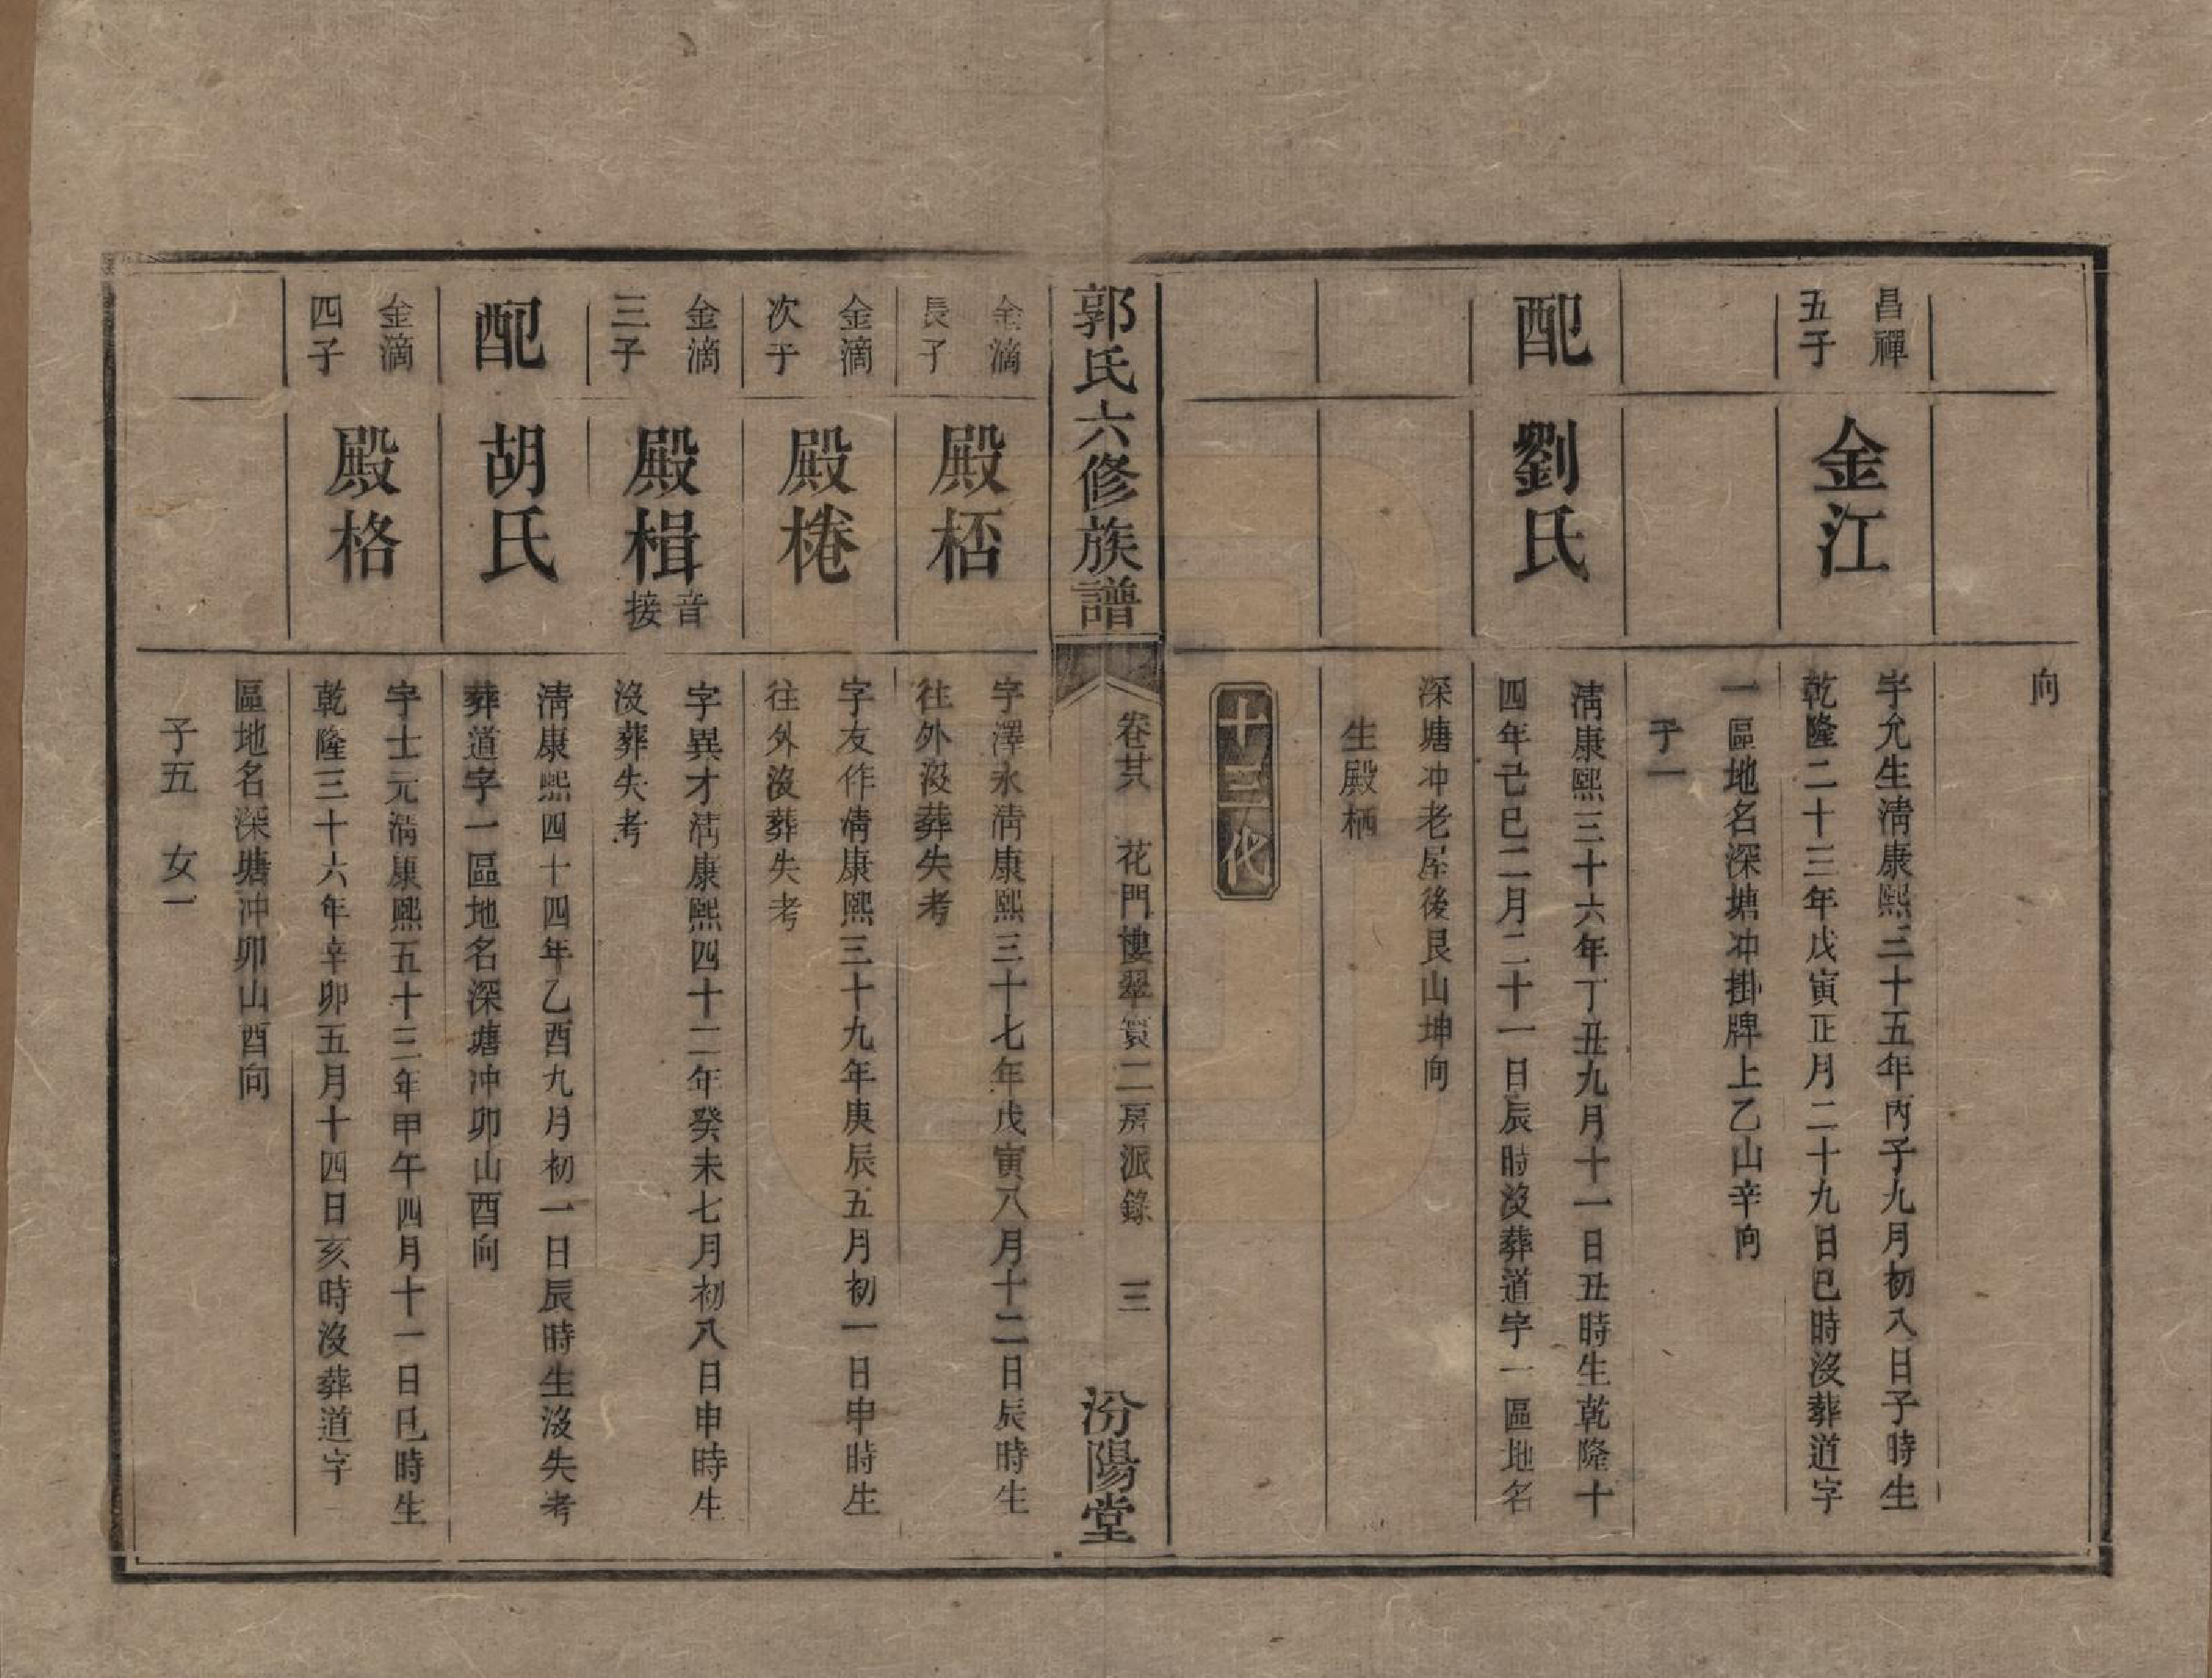 向
昌禪
五子
金江
字允生淸康熙三十五年丙子九月初八日子時生
乾隆二十三年戊寅正月二十九日巳時沒葬道字
一區地名深塘冲掛牌上乙山辛向
子一
配
劉氏
淸康熙三十六年丁丑九月十一日丑時生乾隆十
四年己巳二月二十一日辰時沒葬道字一區地名
深塘冲老屋後艮山坤向
生殿栖
十三代
郭氏六修族譜
卷其 花門樓翠筼二房派錄 三
汾陽堂
金滴
長子
殿桮
字澤永淸康熙三十七年戊寅八月十二日辰時生
往外沒葬失考
金滴
次子
殿棬
字友作淸康熙三十九年庚辰五月初一日申時生
往外沒葬失考
金滴
三子
殿楫
音
接
字異才淸康熙四十二年癸未七月初八日申時生
沒葬失考
配
胡氏
淸康熙四十四年乙酉九月初一日辰時生沒失考
葬道字一區地名深塘冲卯山酉向
金滴
四子
殿格
字士元淸康熙五十三年甲午四月十一日巳時生
乾隆三十六年辛卯五月十四日亥時沒葬道字一
區地名深塘冲卯山酉向
子五 女一